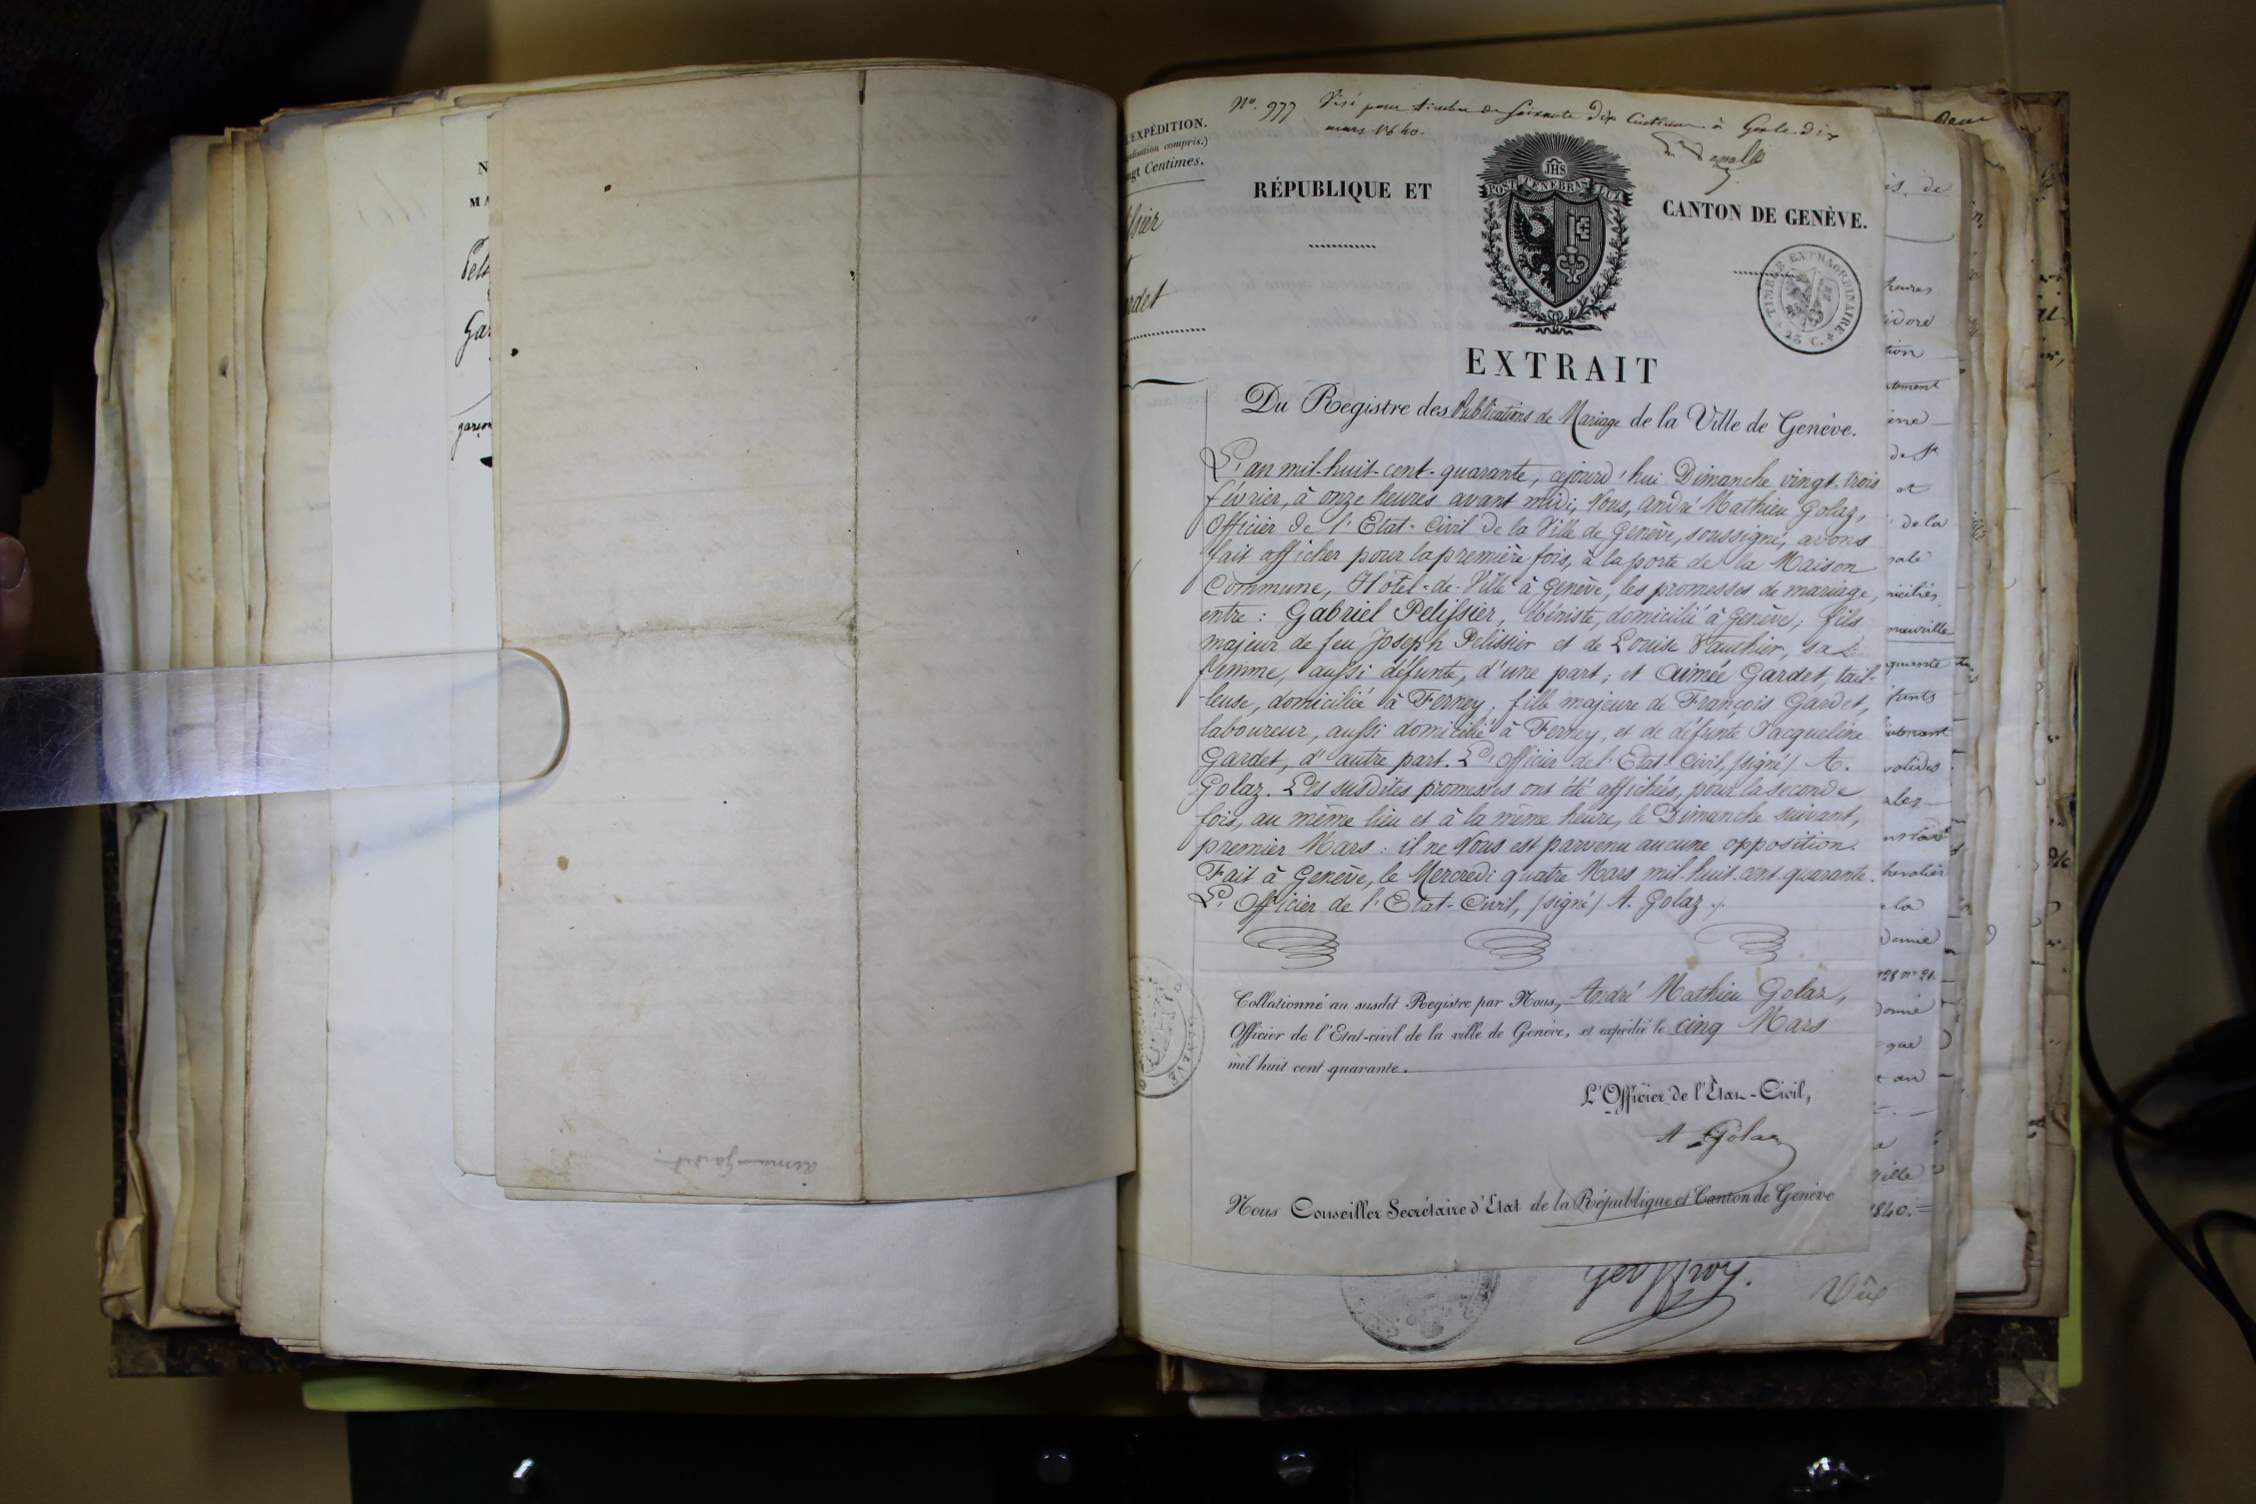 N
MA
Gar
garçon
EXPÉDITION.
compris.)
Centimes.
rdet
No. 977 Visé pour timbre de soixante dix centimes à Gex le dix
mars 1840.
RÉPUBLIQUE ET
JHS
POST TENEBRAS LUX
CANTON DE GENÈVE.
TIMBRE EXTRAORDINAIRE
25 C.
EXTRAIT
Du Registre des Publications de Mariage de la Ville de Genève.
L'an mil-huit-cent-quarante, cejourd'hui Dimanche vingt-trois
février, à onze heures avant midi, Nous, André Mathieu Golaz,
Officier de l'Etat-Civil de la Ville de Genève, soussigné, avons
fait afficher pour la première fois, à la porte de la Maison
Commune, Hôtel-de-Ville à Genève, les promesses de mariage,
entre : Gabriel Pelissier, ébéniste, domicilié à Genève, fils
majeur de feu Joseph Pelissier et de Louise Vauthier, sa
femme, aussi défunte, d'une part ; et Aimée Gardet, tail-
-leuse, domiciliée à Ferney, fille majeure de François Gardet,
laboureur, aussi domicilié à Ferney, et de défunte Jacqueline
Gardet, d'autre part. L'Officier de l'Etat-Civil, (signé) A.
Golaz. Les susdites promesses ont été affichées, pour la seconde
fois, au même lieu et à la même heure, le Dimanche suivant,
premier Mars : il ne Nous est parvenu aucune opposition.
Fait à Genève, le Mercredi quatre Mars mil-huit-cent-quarante.
L'Officier de l'Etat-Civil, (signé) A. Golaz.
Collationné au susdit Registre par Nous, André Mathieu Golaz,
Officier de l'Etat-civil de la ville de Genève, et expédié le cinq Mars
mil huit cent quarante.
L'Officier de l'Etat-Civil,
A Golaz
Nous Conseiller Secrétaire d'Etat de la République et Canton de Genève
Geoffroy.
Vû
is de
heures
de St
et
de la
quarante
128 no 21.
que
et au
1840.